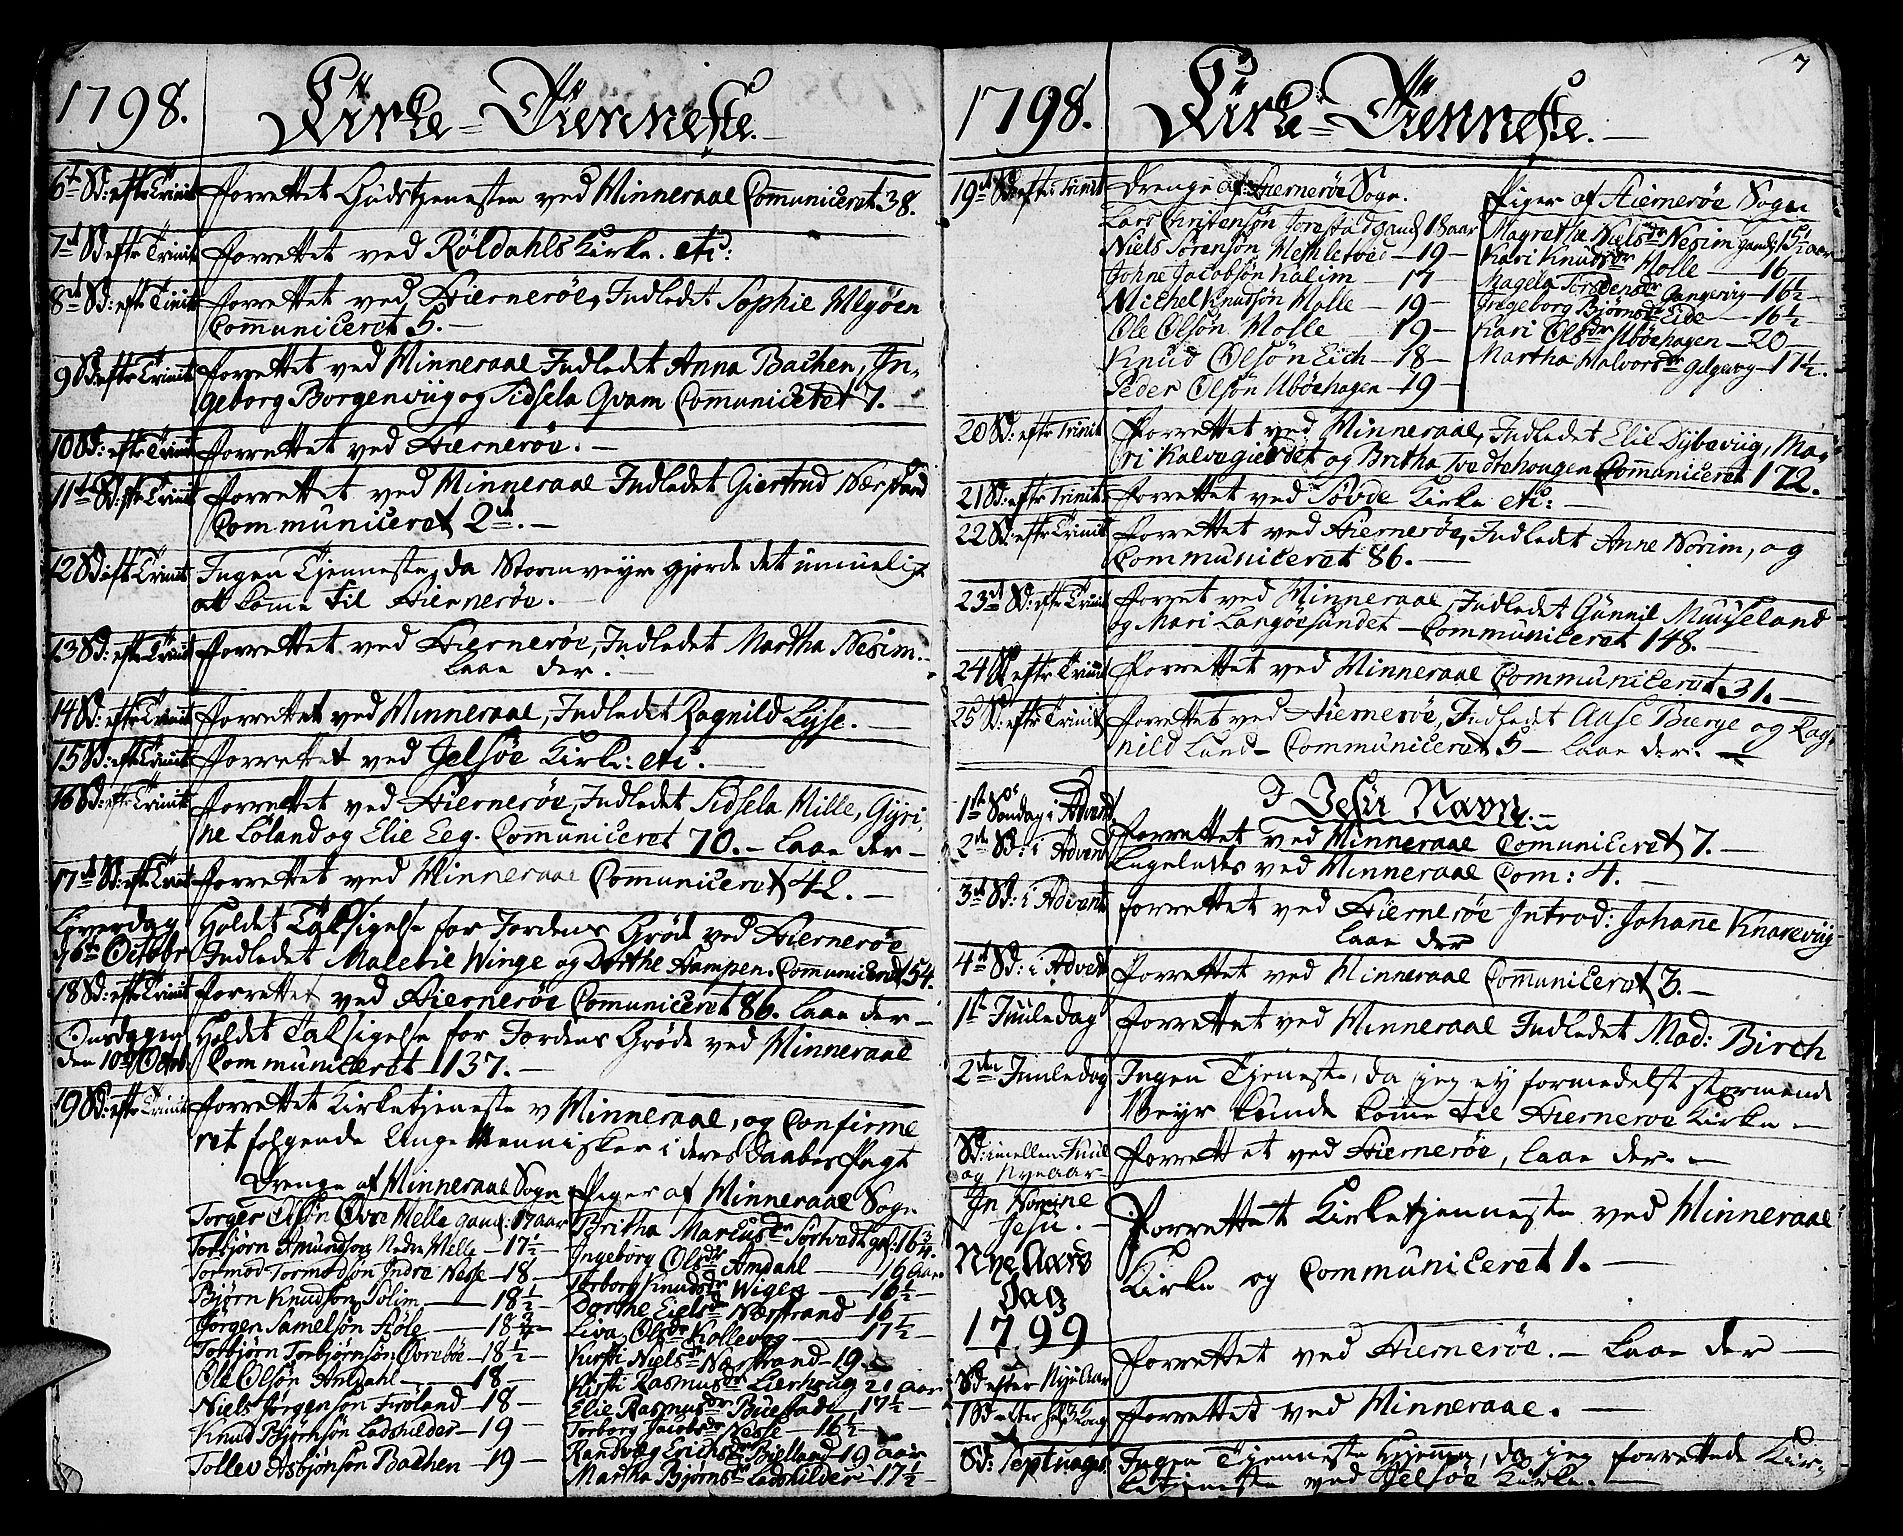 1798. Kirke-Tienneste.
6te Sd: eftr Trinit forrettet Gudstjenesten ved Hinneraae Communiceret 38.
7d Sd eftr Trinit forrettet ved Röldahls Kirke. etc:
8d Sd: eftr Trinit forrettet ved Hiernerøe, Indledet Sophie Meyöen
Communiceret 5.
9 Sd: eftr Trinit forrettet ved Hinneraae Indledet Anna Bachen, In-
geborg Borgenviig og Sidsela Qvam Communiceret 7.
10 Sd: eftr Trinit forrettet ved Hiernerøe.
11d Sd: eftr Trinit forrettet ved Hinneraae Indledet Giertrud Nærstrand
Communiceret 2.
12 Sd: eftr Trinit Ingen Tjenneste, da Stormveyr gjorde det umuelig
at komme til Hiernerøe.
13 Sd: eftr Trinit forrettet ved Hiernerøe, Indledet Martha Nesim.
laae der.
14 Sd: eftr Trinit forrettet ved Hinneraae, Indledet Ragnild Lyse.
15 Sd: eftr Trinit forrettet ved Jelsøe Kirke: etc.
16 Sd: eftr Trinit forrettet ved Hiernerøe, Indledet Sidsela Mille, Gyri,
ne Løland og Elie Eeg. Communiceret 70. laae der
17d Sd: eftr Trinit forrettet ved Hinneraae Communiceret 42.
Løverdag Holdet Taksigelse for Jordens Grøde ved Hiernerøe
d 6te Octobr Indledet Malene Winge og Dorthe Hampen. Communiceret 54.
18 Sd: eftr Trinit forrettet ved Hiernerøe Communiceret 86. laae der
Onsdagen Holdet Taksigelse for Jordens Grøde ved Hinneraae
den 10de Octbr: Communiceret 137.
19 Sd: eftr Trinit forrettet Kirketjeneste v Hinneraae, og Confirme
ret følgende Unge Mennisker i deres Daabes Pagt
Drenge af Hinneraae Sogn
Torger Olsön Øvre Helle gaml: 17 aar
Torbjörn Amundson Nedre Helle 17 1/2
Tormod Tormodsön Indre Nesse 18
Bjørn Knudson Solim 18 1/2
Jørgen Samelsön Støle 18 3/4
Torbjørn Torbjørnsön Øvrebøe 18 1/2
Ole Olsön Amdahl 18
Niels Jørgenson Frøland 18
Knud Bjørnsön Ladshilder 19
Tollev Asbjönsön Bachen 19
Piger af Hinneraae Sogn
Britha Marcusdr Sørtvedt gl: 16 3/4.
Ingeborg Olsdr Amdahl 16 aar
Torborg Knudsdr Wigen 16 1/2
Dorthe Eielsdr Nærstrand 16
Liva Olsdr Kollevog 17 1/2
Kirsti Nielsdr Nærstrand 19
Kirsti Rasmusdr Lierhoug 21 aar
Elie Rasmusdr Buestad 17 1/2
Torborg Jacobsdr Nesse 16 1/2
Randvæg Erichsdr Bielland 19 aar
Martha Bjørnsdr Ladshilder 17 1/2
7
1798. Kirke-Tienneste.
19d Sd eftr Trinit Drenge af Hiernerøe Sogn.
Lars Christensön Jorestad gaml 18 aar
Niels Sörensön Mehlesøed 19
Johne Jacobsön Kalim 17
Michel Knudsön Molle 19
Ole Olsön Mosle 19
Knud Olsön Eich 18
Peder Olsön Ubøehagen 19
Piger af Hiernerøe Sogn
Magretha Nielsdr Nesim gaml: 15 1/2 aar
Kari Knudsdr Molle 16
Magela Torstensdr Gangevig 16 1/2
Ingeborg Bjørnsdr Eide 16 1/2
Kari Olsdr Ubøehagen 20
Martha Halvorsdr Gilgevig 17 1/2.
20 Sd: eftr Trinit forrettet ved Hinneraae, Indledet Elie Dybeviig, Ma-
ri Kalvegierdet og Britha Tvedtehougen Communiceret 172.
21 Sd: eftr Trinit. forrettet ved Søvde Kirke etc:
22 Sd: eftr Trinit forrettet ved Hiernerøe, Indledet Anne Norim, og
Communiceret 86.
23d Sd: eftr Trinit forret ved Hinneraae, Indledet Gunnil Muuseland
og Mari Langøesundet Communiceret 148.
24 Sd eftr Trinit forrettet ved Hinneraae Communiceret 31.
25 Sd: eftr Trinit forrettet ved Hiernerøe, Indledet Aase Berge og Rag-
nild Lund Communiceret 5 laae der.
I Jesu Navn.
1st Søndag i Advent forrettet ved Hinneraae Communiceret 7.
2de Sd: i Advent Ligeledes ved Hinneraae Com: 4.
3d Sd: i Advent forrettet ved Hiernerøe Introd: Johane Knareviig
laae der
4d Sd: i Advent forrettet ved Hinneraae Communiceret 3.
1st Juuledag forrettet ved Hinneraae Indledet Mad: Birch
2den Juuledag Ingen Tjeneste, da jeg ey formedelst stormende
Veyr kunde komme til Hiernerøe Kirke
Sd: imellem Juul forrettet ved Hiernerøe, laae der.
og Nyeaar
In Nomine
Jesu. forrettet Kirketjenneste ved Hinneraae
Nye Aars Kirke og Communiceret 1.
Dag
1799
Sd efter Nye Aar forrettet ved Hiernerøe. laae der
1 Sd efter H 3 K Dag forrettet ved Hinneraae.
Sd: Septuages Ingen Tjenneste hjemme, da jeg forrettede Kir-
ketjeneste ved Jelsøe Kirke.